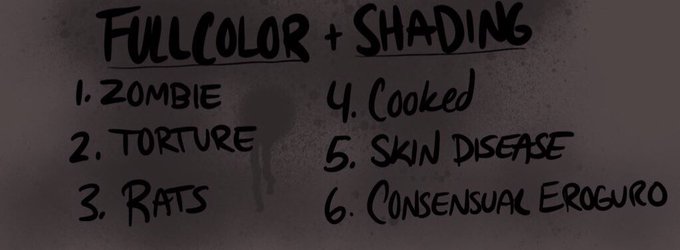 FULLCOLOR + SHADING
1. ZOMBIE
2. TORTURE
3. RATS
4. Cooked
5. SKIN DISEASE
6. CONSENSUAL EROGURO